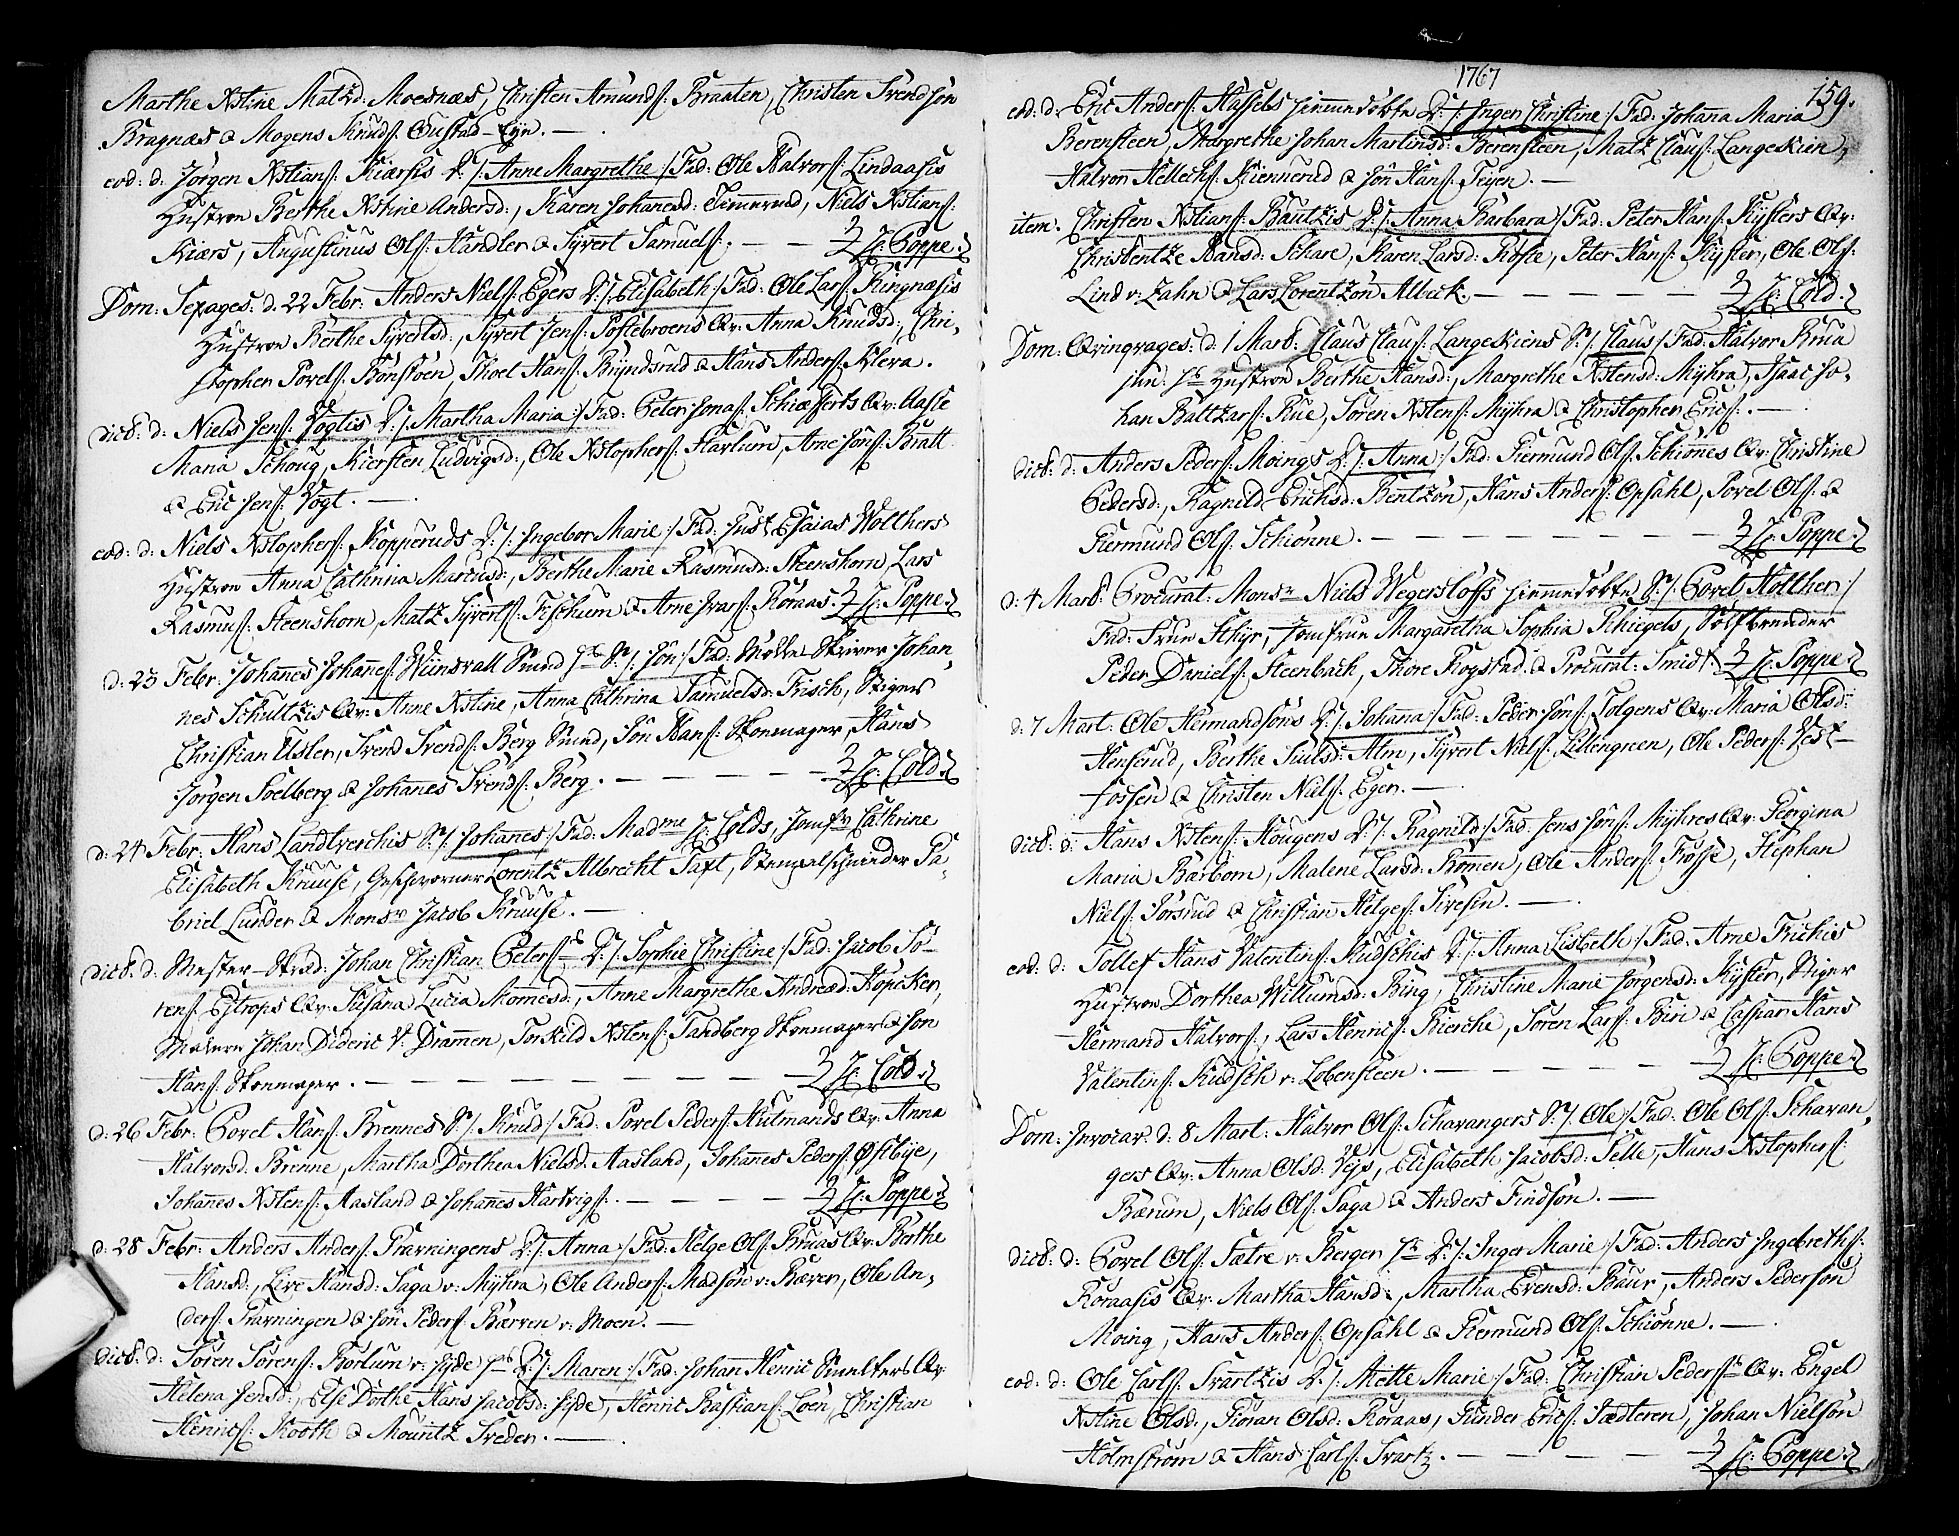 Marthe Xstine Matzd: Moesnæs, Christen Amundſ: Braaten, Christen Svendsön
Bragnæs & Mogens Knudſ: Gustad-Eyn. —
eod: d: Jörgen Xstianſ: Kiærsis D: /: Anne Margrethe :/ Fad: Ole Halvorſ: Lindaasis
Hustroe Berthe Xstine Andersd:, Karen Johannesd: Timerud, Niels Xstianſ:
Kiærs, Augustinus Olſ: Handler & Syvert Samuelſ: — — H: Poppe.
Dom: Sexages: d. 22 Febr: Anders Nielſ: Egers D: /: Elisabeth :/ Fad: Ole Larſ: Ringnæsis
Hustroe Berthe Syvertsd:, Syvert Jenſ: Postebroens Qv: Anna Knudsd:, Chri-
stopher Povelſ: Bonstoen, Thoel Hanſ: Ryndsrud & Hans Anderſ: Klova.
dict: d: Niels Jenſ: Vogtis D: /: Martha Maria :/ Fad: Peter Jonaſ: Schiæfferts Qv: Aasle
Maria Schoug, Kiersten Ludvigsd:, Ole Xstopherſ: Harlum, Arne Jönſ: Bratt
& Eric Jenſ: Vogt. —
eod: d: Niels Xstopherſ: Kopperuds D: /: Ingebor Marie :/ Fad: Just Esaias Wolthers
Hustroe Anna Cathrina Marcusd:, Berthe Marie Rasmusd: Steenshorn, Lars
Rasmuſ: Steenshorn, Matz Syvertſ: Fischum & Arne Ivarſ: Röraas. H: Poppe.
d: 23 Febr: Johannes Johaneſ: Wiinsvall Smed S: /: Jön :/ Fad: Mölle Skriver Johan-
nes Schultzis Qv: Anne Xstine, Anna Cathrina Samuelsd: Frisch, Stiger
Christian Usler, Svend Svendſ: Berg Smed, Jön Hanſ: Skomager, Hans
Jörgen Soelberg & Johanes Svendſ: Berg. — — — — H: Cold.
d: 24 Febr: Hans Landtverchis S: /: Johanes :/ Fad: Madme H: Colds, Jomfr Cathrine
Elisabeth Kruuse, Geschworner Lorentz Albrecht Taft, Stempelschneider Ga-
briel Lunder & Monsr Jacob Kruuse. —
dict: d: Mester-Skræd: Johan Christian Peterſ: D: /: Sophie Christine :/ Fad: Jacob Sö-
renſ: Estrops Qv: Susana Lucia Momesd:, Anne Margrethe Andread: Köpcker,
Maleren Johan Dideric v: Drammen, Torkild Xstenſ: Tandberg Skomager & Jon
Hanſ: Skomager. — — — — — — — — H: Cold.
d: 26 Febr: Povel Hanſ: Brennes S: /: Knud :/ Fad: Povel Pederſ: Hutmands Qv: Anna
Halvorsd: Brenne, Martha Dorthea Nielsd: Aasland, Johannes Pederſ: Østbye,
Johannes Xstenſ: Aasland & Johanes Hartvigſ:. — — — — H: Poppe.
d: 28 Febr: Anders Anderſ: Pravningens D: /: Anna :/ Fad: Helge Olſ: Bruas Qv: Berthe
Hansd:, Live Hansd: Saga v: Myhra, Ole Anderſ: Madsön v: Bæver, Ole An-
derſ: Pravningen & Jön Pederſ: Bærven v: Moen. —
dict: d: Sören Sörenſ: Borlum v: Hyde D: /: Maren :/ Fad: Johan Henric Smelters Qv
Helena Jensd:, Else Dorthe Hans Jacobsd: Hyde, Henric Bastianſ: Loen, Christian
Henricſ: Kooth & Mouritz Treder. —
1767
159.
eod: d: Eric Anderſ: Hassels hiemedöbte D: /: Inger Christine :/ Fad: Johanna Maria
Berensteen, Margrethe Johan Martinsd: Berensteen, Matz Clauſ: Langeskien,
Halvor Hellechſ: Kiennerud & Jön Hanſ: Teyen. —
item. Christen Xstianſ: Bautzis D: /: Anna Barbara :/ Fad: Peter Hanſ: Kysters Qv:
Christentze Hansd: Schare, Karen Larsd: Foſse, Peter Hanſ: Kyster, Ole Olſ:
Lind v: Zahn & Lars Lorentzön Albeck. — — — — — H: Cold.
Dom: Qvinqvages: d: 1 Mart: Claus Clauſ: Langeskiens S: /: Claus :/ Fad: Halvor Brua
jun: Hustroe Berthe Hansd:, Margrethe Xstensd: Myhra, Isaac Jo-
han Baltzarſ: Rue, Sören Xstenſ: Myhra & Christopher Ericſ:. —
dict: d: Anders Pederſ: Moings D: /: Anna :/ Fad: Giermund Olſ: Schiönnes Qv: Christine
Pedersd:, Ragnild Erichsd: Bentzön, Hans Anderſ: Opsahl, Povel Olſ: &
Giermund Olſ: Schiönne. — — — — — — — H: Poppe.
d: 4 Mart: Procurat: Monsr Niels Wegersloffs hiemedöbte S: /: Povel Holther :/
Fad: Frue Schyt, Jomfrue Margaretha Sophia Schiegels, Sölfbrender
Peder Danielſ: Steenbach, Thore Rogstad & Procurat: Smidt. H: Poppe.
d: 7 Mart: Ole Hermandsöns D: /: Johanna :/ Fad: Peder Jönſ: Folgens Qv: Maria Olsd:
Henserud, Berthe Juulsd: Alm, Syvert Nielſ: Lillengreen, Ole Pederſ: Vest-
fossen & Christen Nielſ: Eger. —
dict: d: Hans Xstenſ: Hougens D: /: Ragnild :/ Fad: Jens Jönſ: Myhres Qv: Georgina
Maria Bærbom, Malene Larsd: Bömen, Ole Anderſ: Fosse, Stephan
Nielſ: Jorsrud & Christian Helgeſ: Sivesin. —
eod: d: Tollef Hans Valentinſ: Kudschis D: /: Anna Lisbeth :/ Fad: Arne Frichis
Hustroe Dorthea Willumsd: Bing, Christine Marie Jörgensd: Kyster, Stiger
Hermand Halvorſ:, Lars Henricſ: Bierche, Sören Larſ: Biri & Cassian Hans
Valentinſ: Kudsch v: Lobensteen. — — — — — H: Poppe.
Dom: Invocav: d: 8 Mart: Halvor Olſ: Schavangers S: /: Ole :/ Fad: Ole Olſ: Schavan-
gers Qv: Anna Olsd: Veje, Elisabeth Jacobsd: Selle, Hans Xstopherſ:
Bærum, Niels Olſ: Saga & Anders Findsön. —
dict: d: Povel Olſ: Sætre v: Bergen D: /: Inger Marie :/ Fad: Anders Ingebrethſ:
Röraasis Qv: Martha Hansd:, Martha Evensd: Baur, Anders Pedersön
Moing, Hans Anderſ: Opsahl & Giermund Olſ: Schiönne. —
eod: d: Ole Carlſ: Svartzis D: /: Mette Marie :/ Fad: Christian Pederſ: Qv: Engel
Xstine Olsd:, Göran Olsd: Röraas, Gunder Ericſ: Sædteren, Johan Nielsön
Holmström & Hans Carlſ: Svartz. — — — — — H: Poppe.